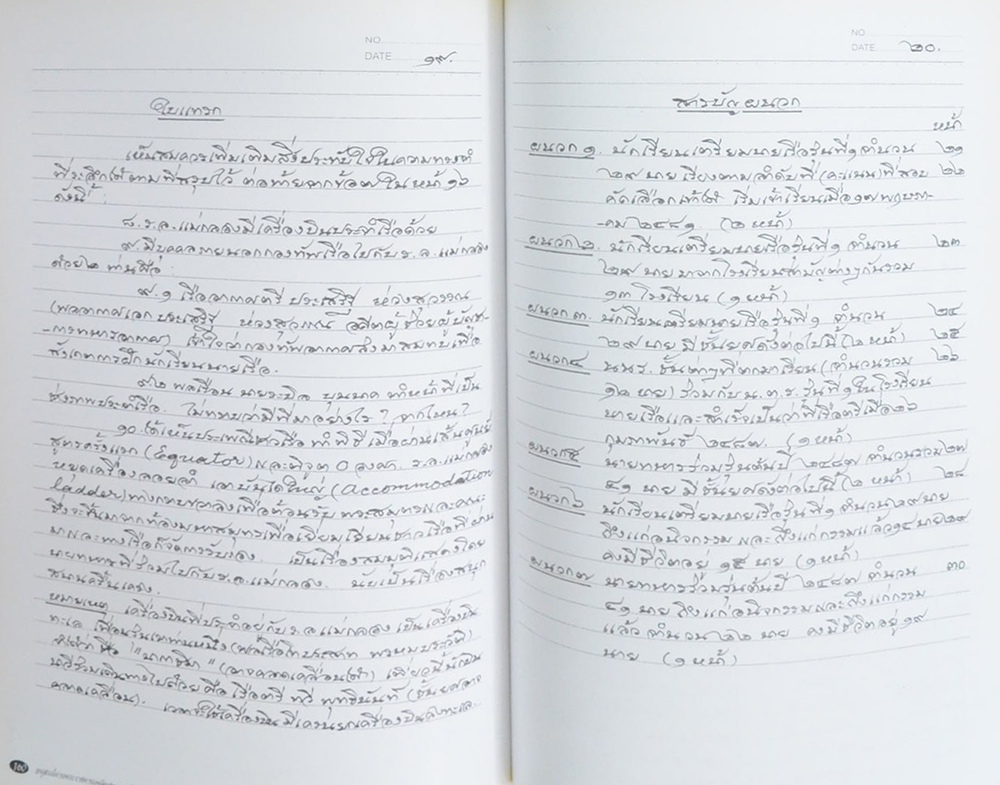 NO.
DATE ๑๙.
ใบแทรก
เห็นสมควรเพิ่มเติมสิ่งประทับใจในความทรงจำ
ที่ระลึกได้ตามที่สรุปไว้ ต่อท้ายจากข้อ๗ในหน้า๑๖
ดังนี้ :
๘. ร.ล.แม่กลองมีเครื่องบินประจำเรือด้วย
๙. มีบุคคลภายนอกกองทัพเรือไปกับร.ล.แม่กลอง
ด้วย๒ ท่านคือ :
๙.๑ เรืออากาศตรี ประเสริฐ ห่วงสุวรรณ
(พลอากาศเอก ประเสริฐ ห่วงสุวรรณ อดีตผู้ช่วยผู้บัญชา-
-การทหารอากาศ) เข้าใจว่ากองทัพอากาศส่งมาสมทบเพื่อ
สังเกตการฝึกนักเรียนนายเรือ.
๙.๒ พลเรือน นายระบิล บุนนาค ทำหน้าที่เป็น
ช่างภาพประจำเรือ. ไม่ทราบว่ามีที่มาอย่างไร? จากไหน?
๑๐. ได้เห็นประเพณีชาวเรือ ทำพิธีเมื่อผ่านเส้นศูนย์
สูตรครั้งแรก (Equator) ละติจูด 0 องศา. ร.ล.แม่กลอง
หยุดเครื่องลอยลำ เอาบันไดใหญ่ (Accommodation
ladder) ทางกราบขวาลงเพื่อต้อนรับ พระสมุทรและคณะ
ซึ่งจะขึ้นมาจากท้องมหาสมุทรเพื่อเยี่ยมเยียนชาวเรือที่ผ่าน
มาและทางเรือก็จัดการรับรอง. เป็นเรื่องสมมติแสดงโดย
นายทหารที่ร่วมไปกับร.ล.แม่กลอง. นับเป็นเรื่องสนุก
สนานครื้นเครง.
หมายเหตุ เครื่องบินที่ประจำอยู่กับร.ล.แม่กลอง เป็นเครื่องบิน
ทะเล เพื่อนร่วมรุ่นท่านหนึ่ง (พลเรือโทประสาท พรหมประวัติ)
(อาจคลาดเคลื่อนได้) เที่ยวนี้นักบิน
นาวีร่วมเดินทางไปด้วย คือ เรือตรี ทวี พุทธินันท์ (ชั้นยศอาจ
คลาดเคลื่อน).
160
NO.
DATE ๒๐.
สารบัญผนวก
หน้า
ผนวก ๑. นักเรียนเตรียมนายเรือรุ่นที่๑ จำนวน ๒๑
๒๙ นาย เรียงตามลำดับที่ (คะแนน) ที่สอบ ๒๒
คัดเลือกเข้าได้ เริ่มเข้าเรียนเมื่อ๑๗พฤษภา-
-คม ๒๔๘๑. (๒ หน้า)
ผนวก ๒. นักเรียนเตรียมนายเรือรุ่นที่๑ จำนวน ๒๓
๒๙ นาย มาจากโรงเรียนสำคัญต่างๆกันรวม
๑๓ โรงเรียน (๑ หน้า)
ผนวก ๓. นักเรียนเตรียมนายเรือรุ่นที่๑ จำนวน ๒๔
๒๙ นาย มีชั้นยศดังต่อไปนี้ (๒ หน้า) ๒๕
ผนวก ๔ นนร. ชั้นต่างๆที่ตกมาเรียน (จำนวนรวม ๒๖
๑๒ นาย) ร่วมกับน.ต.ร.รุ่นที่๑ในโรงเรียน
นายเรือและสำเร็จเป็นว่าที่เรือตรีเมื่อ๒๖
กุมภาพันธ์ ๒๔๘๗. (๑ หน้า)
ผนวก ๕ นายทหารร่วมรุ่นต้นปี ๒๔๘๗ จำนวนรวม ๒๗
๔๑ นาย มีชั้นยศดังต่อไปนี้ (๒ หน้า) ๒๘
ผนวก ๖ นักเรียนเตรียมนายเรือรุ่นที่๑ จำนวน๒๙นาย
ถึงแก่อนิจกรรม และ ถึงแก่กรรมแล้ว๑๔ นาย ๒๙
คงมีชีวิตอยู่ ๑๕ นาย (๑ หน้า)
ผนวก ๗ นายทหารร่วมรุ่นต้นปี ๒๔๘๗ จำนวน ๓๐
๔๑ นาย ถึงแก่อนิจกรรมและถึงแก่กรรม
แล้ว จำนวน ๒๒ นาย คงมีชีวิตอยู่ ๑๙
นาย (๑ หน้า)